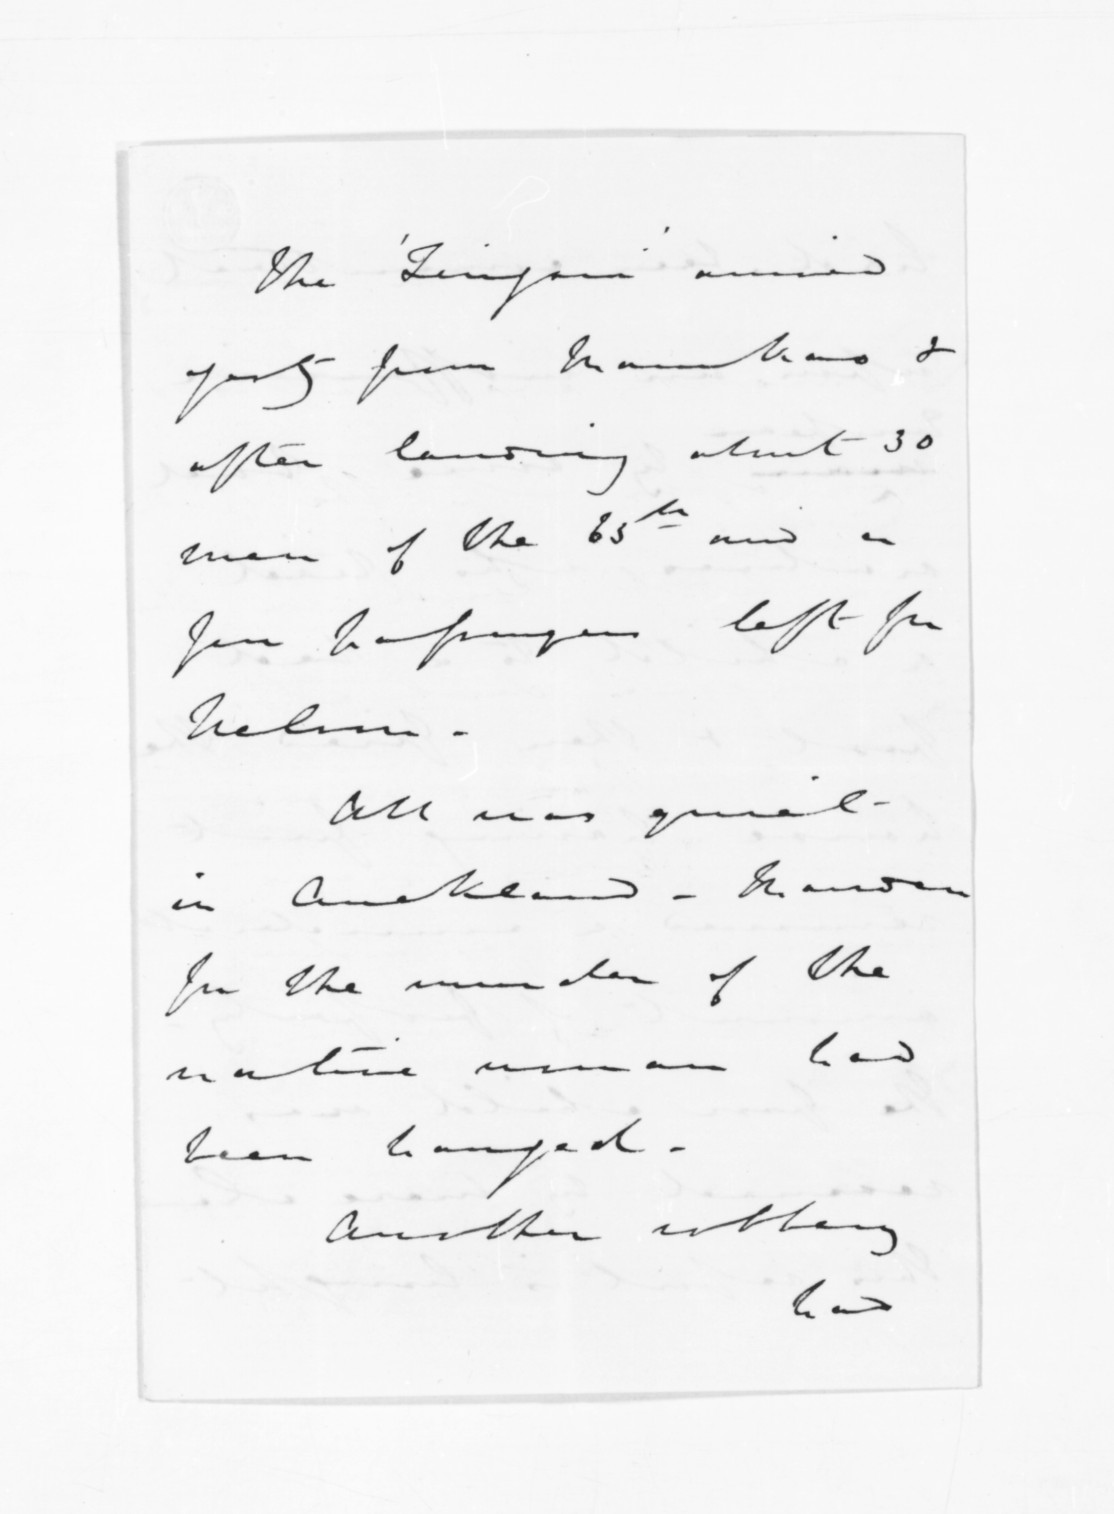 The 'Airedale' arrived
yesty from Manukau &
after landing about 30
men of the 65th and a
few passengers left for
Nelson.
All was quiet
in Auckland - Marsden
for the murder of the
native woman had
been hanged.
Another robbery
had